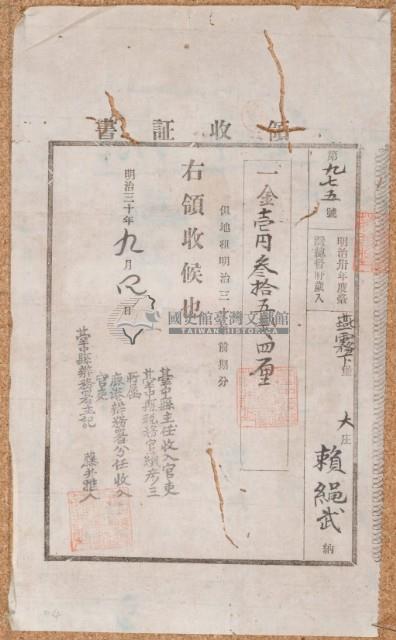 領收証書
第九七五號
明治卅年度臺
灣總督府歲入
燕霧下堡
大庄
賴繩武 納
一金壹円參拾五錢四厘
但地租明治三十年前期分
右領收候也
明治三十年九月 日
臺中縣主任收入官吏
臺中縣稅務官
所屬
鹿港辨務署分任收入
官吏
臺中縣辨務署主記
國史館臺灣文獻館
TAIWAN HISTORICA